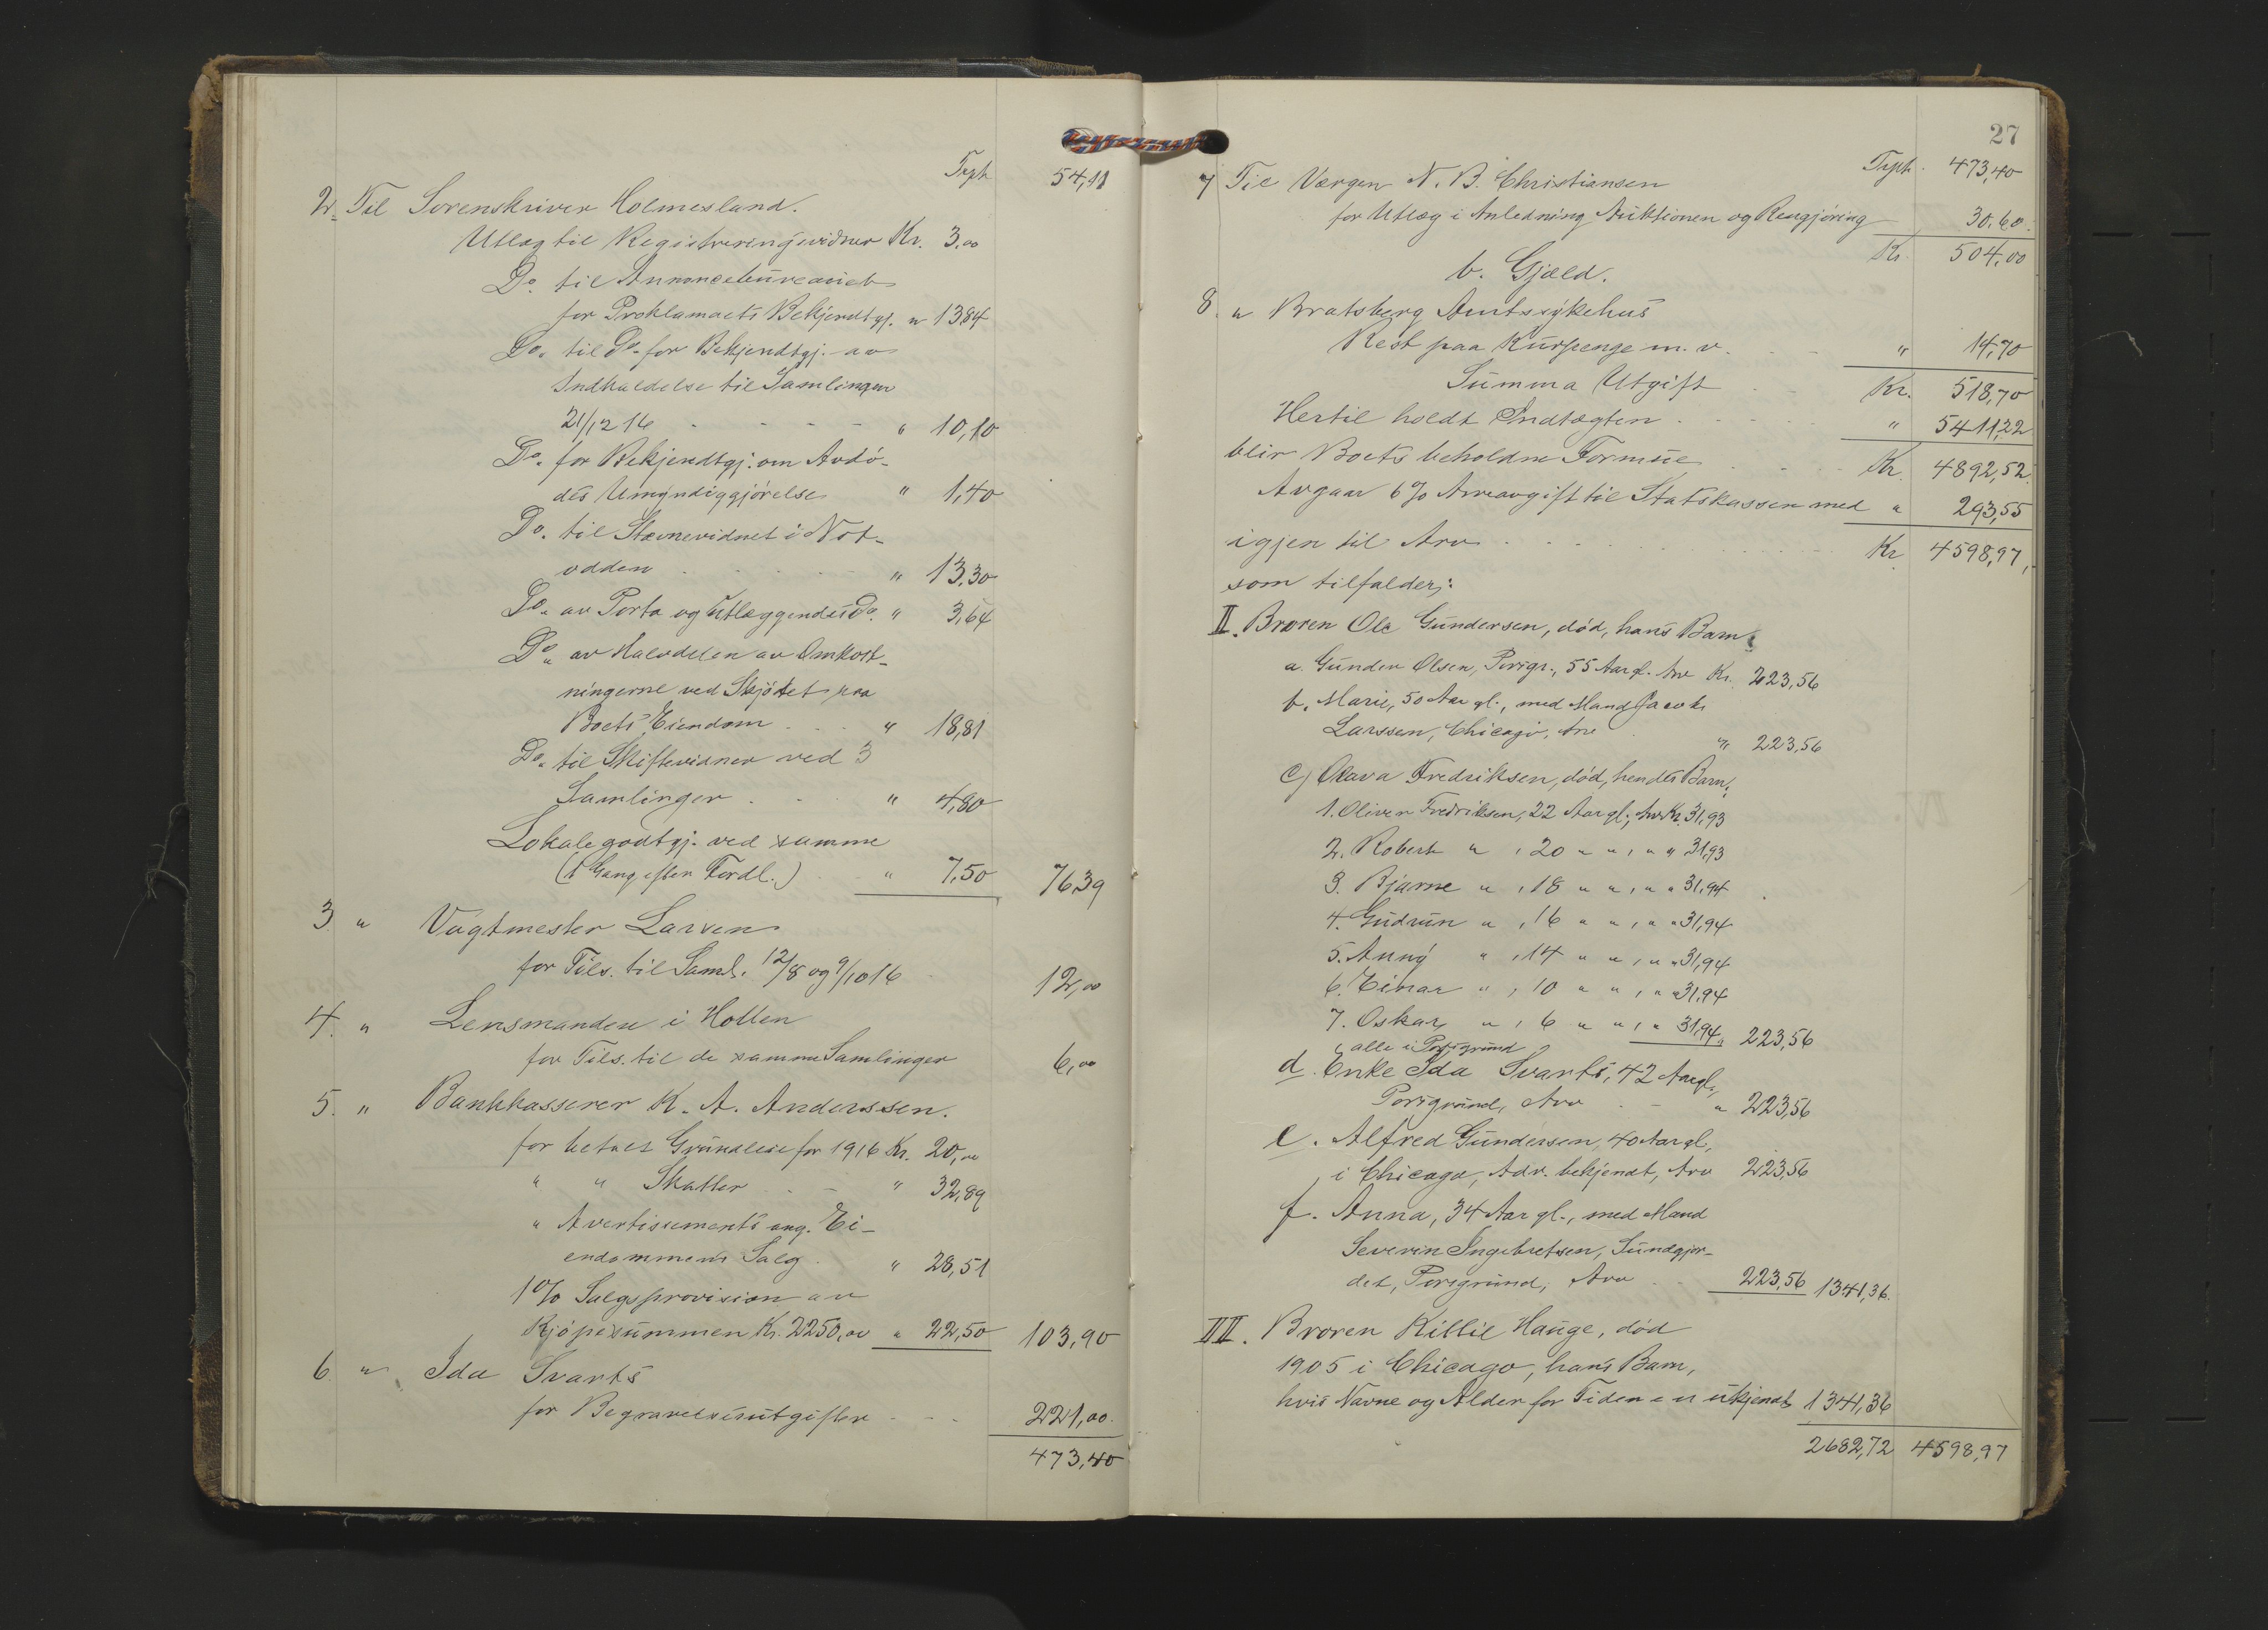 Trph 54,11
2. Til Sorenskriver Holmesland.
Utlæg til Registreringsvidner Kr. 3.00
Do. til Annoncebureauet
for Proklamaets Bekjendtgj. " 13,84
Do. til Do. for Bekjendtgj. av
Indkaldelse til Samlingen
21/12 16 . - - - - " 10,10
Do. for Bekjendtgj. om Avdø-
des Umyndiggjörelse " 1,40
Do. til Stævnevidnet i Not-
odden . . . - - " 13,30
Do. av Porto og Utlæggendes Do. " 3,64
Do. av Halvdelen av Omkost-
ningerne ved Skjötet paa
Boets Eiendom . . - " 18,81
Do. til Skiftevidner ved 3
Samlinger . . " 4,80
Lokalegodtgj. ved samme
(1 Gang efter Fordl.) " 7,50 76,39
3 " Vagtmester Larsen
for Tils. til Saml. 12/8 og 9/10 16 12,00
4. " Lensmanden i Hollen
for Tils. til de samme Samlinger 6,00
5. " Bankkasserer K. A. Anderssen.
for betalt Grundleie for 1916 Kr. 20,00
" " Skatter . . - " 32,89
" Avertissements ang. Ei-
endommens Salg . " 28,51
1% Salgsprovision av
Kjöpesummen Kr. 2250,00 " 22,50 103,90
6. " Ida Svarts
for Begravelsesutgifter - - - 221,00.
473,40
27
Trph. 473,40
7 Til Værgen N. B. Christiansen
for Utlæg i Anledning Auktionen og Rengjöring 30,60.
Kr. 504,00
b. Gjæld.
8. " Bratsberg Amtssykehus
Rest paa Kurpenge m. v. - - " 14,70
Summa Utgift - - Kr. 518,70
Hertil holdt Indtægten . . . . . " 5411,22
blir Boets beholdne Formue - - - Kr. 4892,52.
Avgaar 6% Arveavgift til Statskassen med " 293,55
igjen til Arv . . . . . Kr. 4598,97,
som tilfalder:
II. Broren Ole Gundersen, död, hans Barn:
a. Gunder Olsen, Porsgr., 55 Aar gl. Arv Kr. 223,56
b. Marie, 50 Aar gl., med Mand Jacob
Larssen, Chicago, Arv . " 223,56
c) Olava Fredriksen, död, hendes Barn:
1. Oliver Fredriksen, 22 Aar gl., Arv Kr. 31,93
2. Robert " , 20 " " , " " 31,93
3. Bjarne " , 18 " " , " " 31,94
4. Gudrun " , 16 " " , " " 31,94
5. Anny " , 14 " " , " " 31,94
6. Einar " , 10 " " , " " 31,94
7. Oskar " , 6 " " , " 31,94, 223,56
alle i Porsgrund
d. Enke Ida Svarts, 42 Aar gl.,
Porsgrund, Arv . - " 223,56
e. Alfred Gundersen, 40 Aar gl.,
i Chicago, Adr. bekjendt, Arv 223,56
f. Anna, 34 Aar gl., med Mand
Severin Ingebretsen, Sundgjor-
det, Porsgrund, Arv . . 223,56 1341,36.
III. Broren Kittil Hauge, död
1905 i Chicago, hans Barn,
hvis Navne og Alder for Tiden er ukjendt 1341,36
2682,72 4598,97